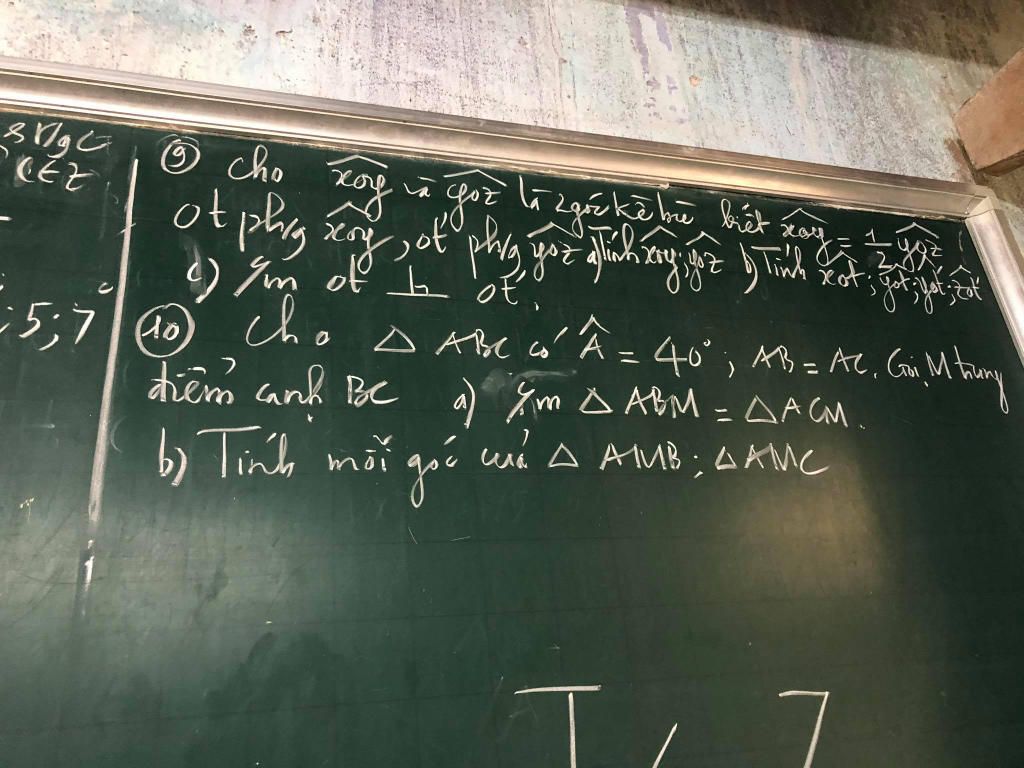 x ∈ Z
; 5 ; 7
⑨ Cho x̂oy và ŷoz là 2 góc kề bù biết x̂oy = 1/2 ŷoz
ot ph/g x̂oy, ot' ph/g ŷoz a) Tính x̂oy; ŷoz b) Tính x̂ot; ŷot; ŷot'; ẑot'
c) c/m ot ⊥ ot'.
⑩ Cho △ ABC có Â = 40°; AB = AC. Gọi M trung
điểm cạnh BC a) c/m △ ABM = △ ACM.
b) Tính mỗi góc của △ AMB; △ AMC